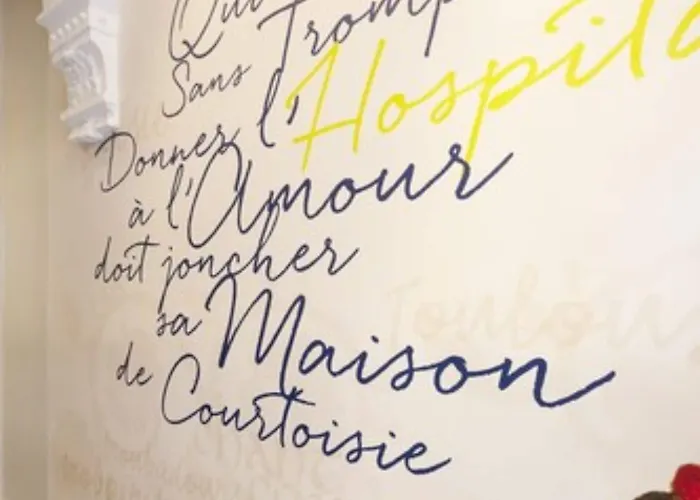 Qui
Sans Tromp
Donner l'Hospita
à l'Amour
doit joncher
sa Maison
de Courtoisie
Toulou